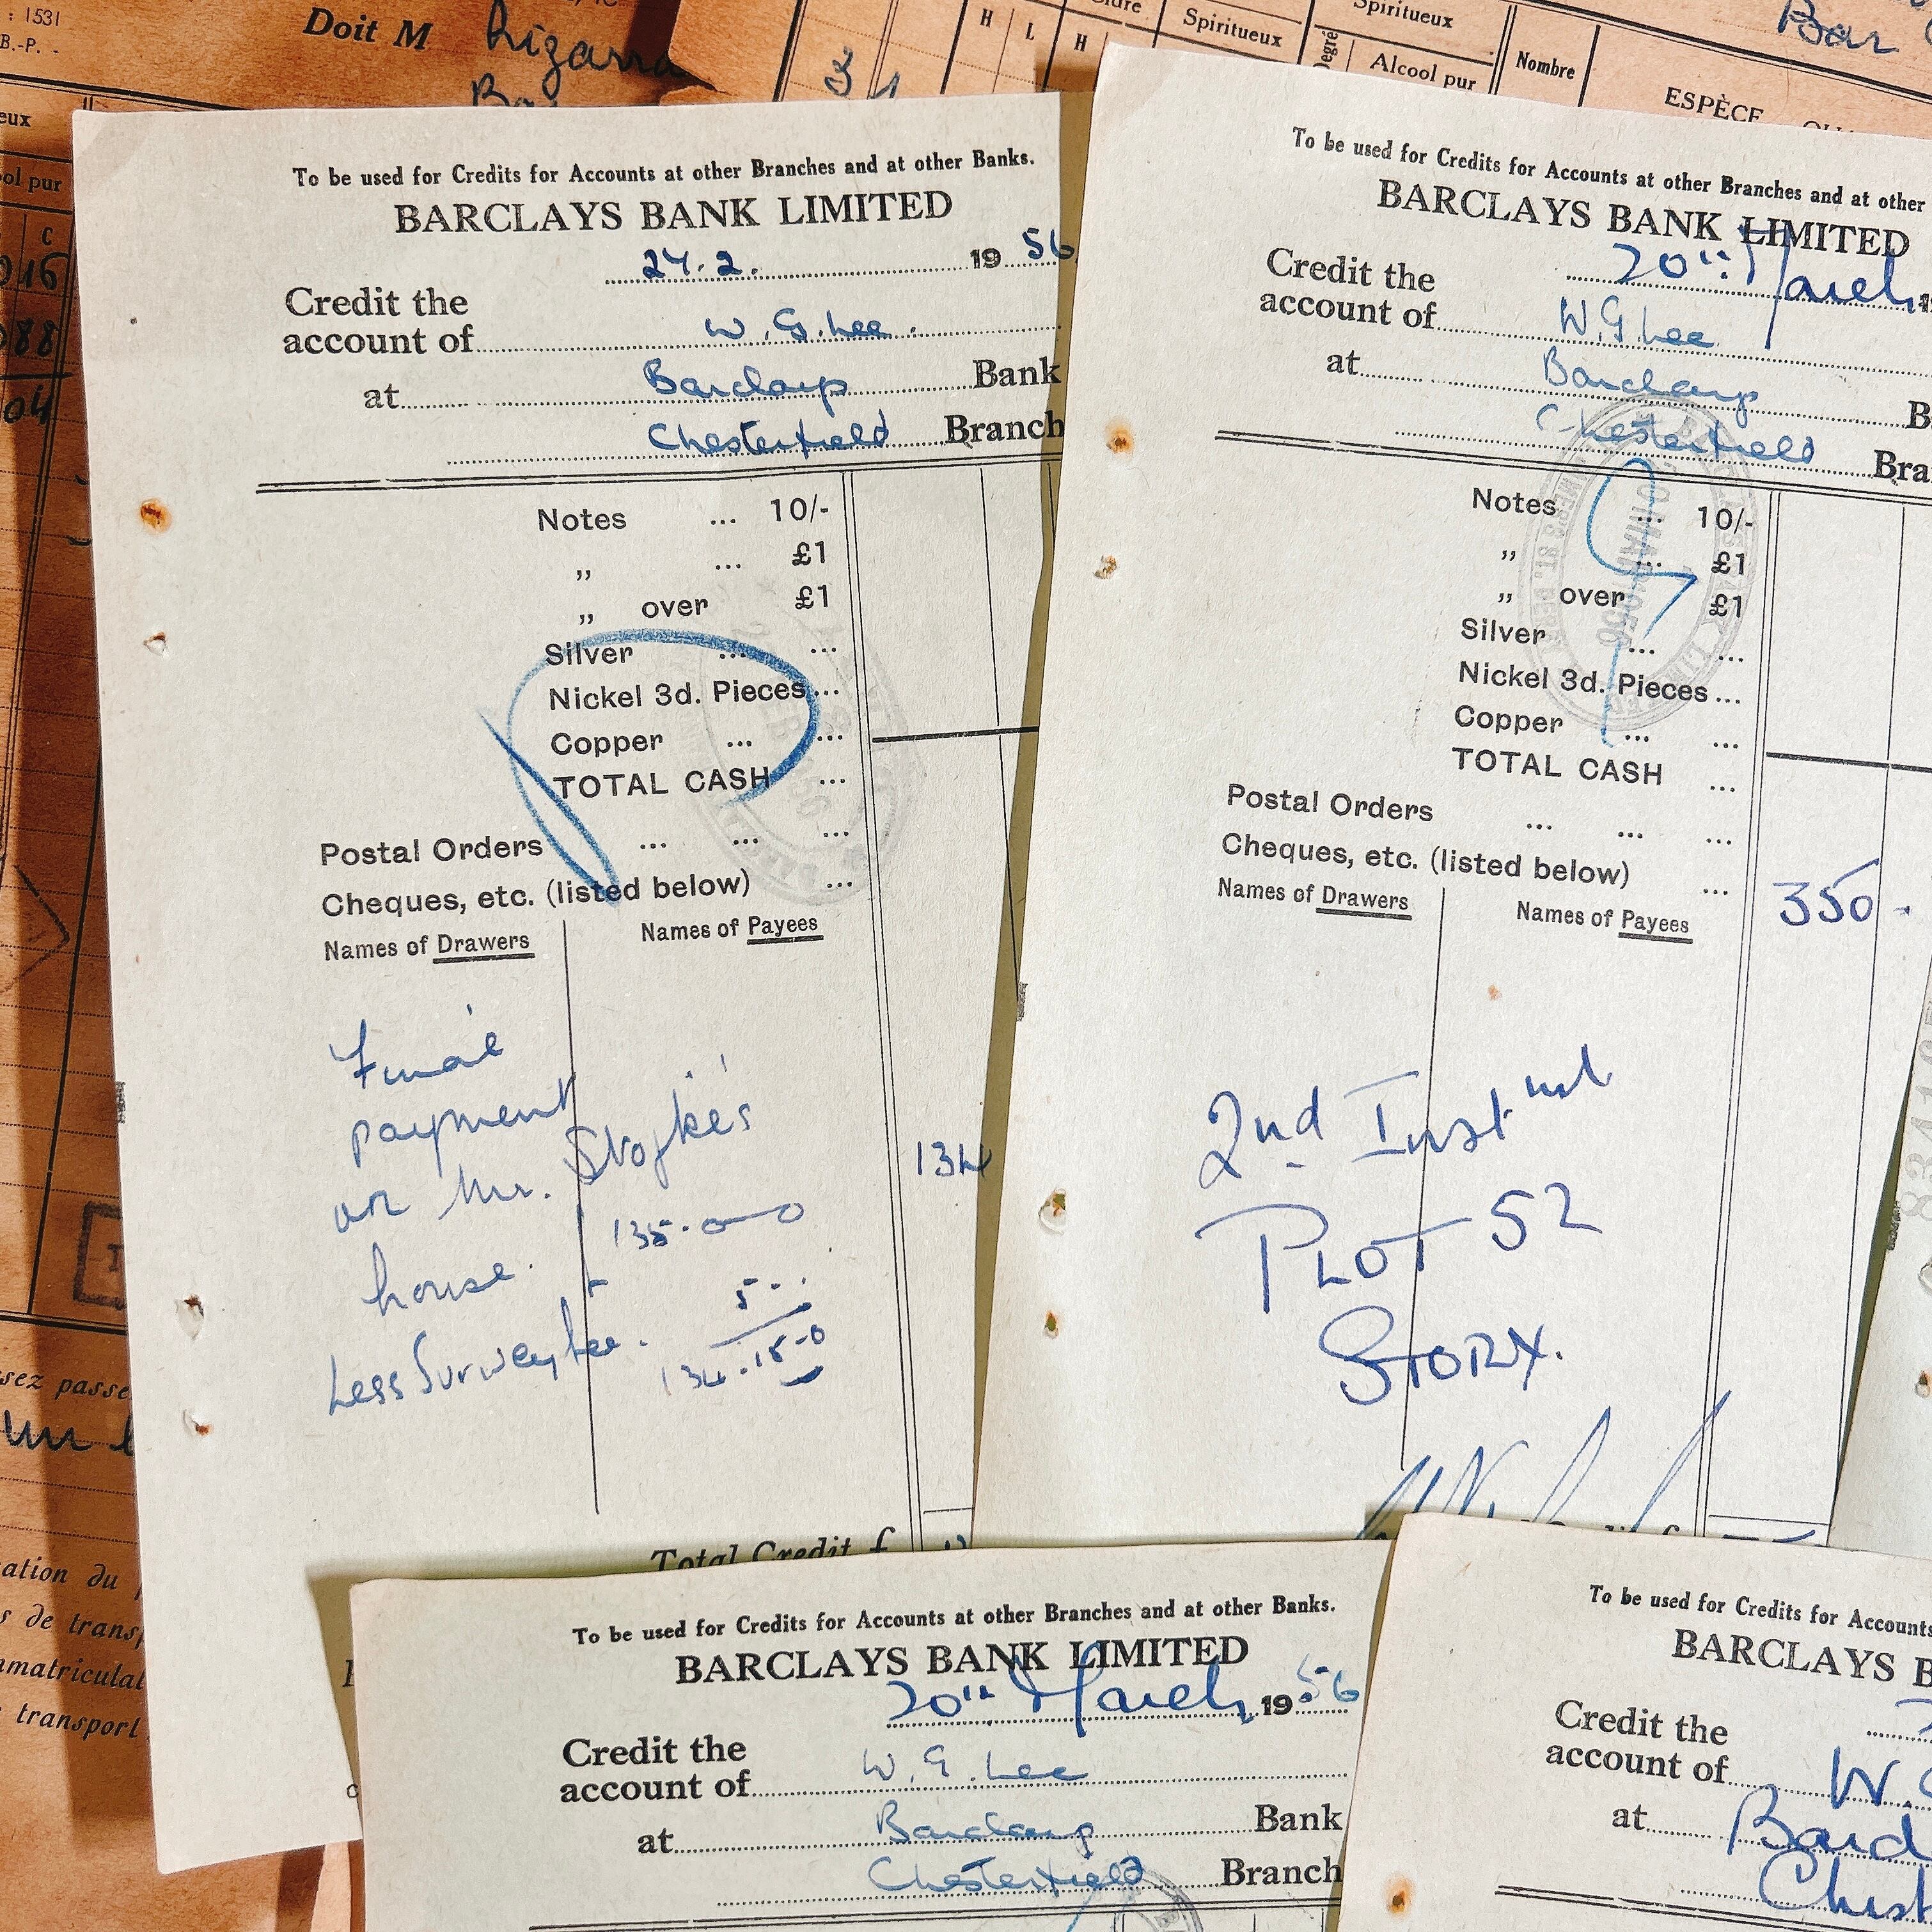 : 1531
B.-P. -
Doit M
Bar
Spiritueux
Spiritueux
H L H
Degré
Alcool pur
Nombre
ESPÈCE
eux
ol pur
C
016
088
04
To be used for Credits for Accounts at other Branches and at other Banks.
BARCLAYS BANK LIMITED
24.2. 19 56
Credit the
account of W. G. Lee.
at Barclays Bank
Chesterfield Branch
Notes ... 10/-
„ ... £1
„ over £1
Silver ... ...
Nickel 3d. Pieces ...
Copper ... ...
TOTAL CASH ...
Postal Orders ... ... ...
Cheques, etc. (listed below) ...
Names of Drawers Names of Payees
Final
payment
on Mr.
house.
135.0–0
134
5–
Less Survey fee. 134.15–0
Total Credit £
To be used for Credits for Accounts at other Branches and at other
BARCLAYS BANK LIMITED
20th March 1
Credit the
account of W. G. Lee
at Barclays B
Chesterfield Bra
Notes ... 10/-
„ ... £1
„ over £1
Silver ... ...
Nickel 3d. Pieces ...
Copper ... ...
TOTAL CASH ...
Postal Orders ... ... ...
Cheques, etc. (listed below) ... 350 -
Names of Drawers Names of Payees
2nd Inst.
PLOT 52
STORY.
To be used for Credits for Accounts at other Branches and at other Banks.
BARCLAYS BANK LIMITED
20th March 19 56
Credit the
account of W. G. Lee
at Barclays Bank
Chesterfield Branch
To be used for Credits for Accounts
BARCLAYS B
Credit the
account of W.
at Barcl
Chest
ssez passe
ation du
s de transp
mmatriculat
transport